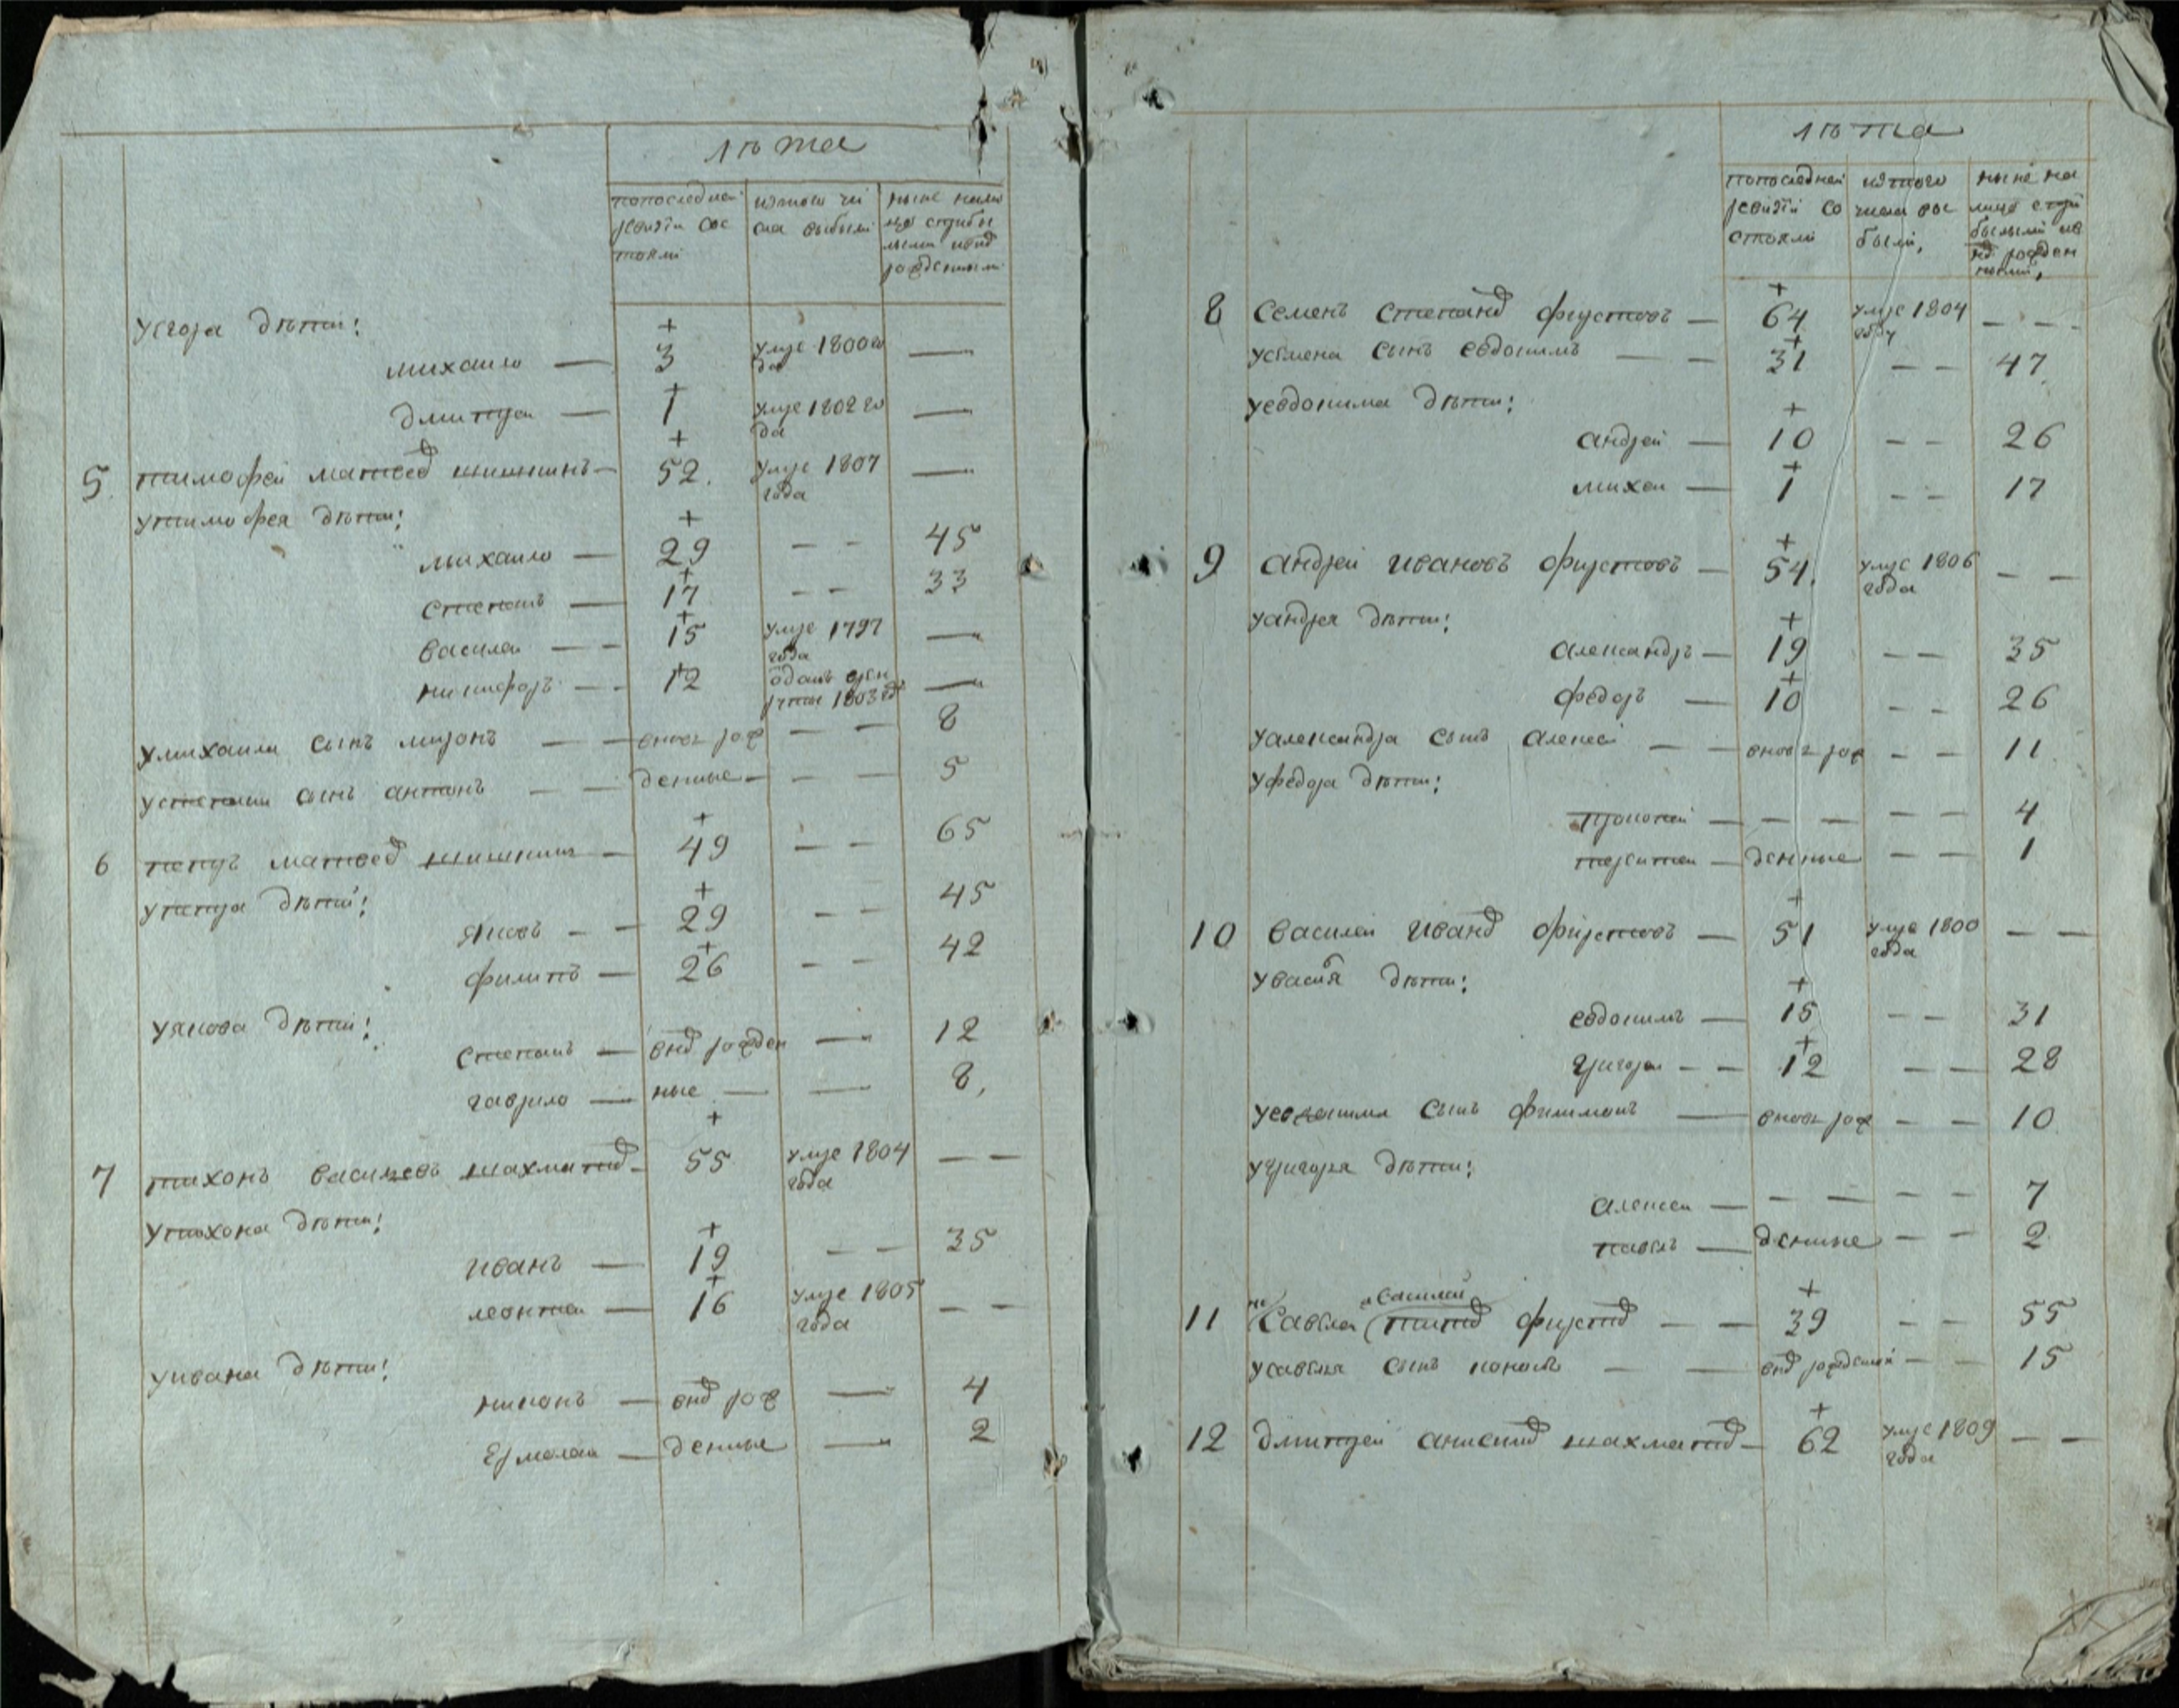 лѣта
попоследней ревизïи сос тояли
изтого чи сла выбыли
ныне нали цо
уегора дѣти:
михаило — 3 умре 1800 го да —
дмитреи — 1 умре 1802 го да —
5. тимофеи матвеев шишкинъ — 52. умре 1807 года —
утимофея дѣти:
михаило — 29 — — 45
степанъ — 17 — — 33
василеи — — 15 умре 1797 года —
никифоръ — — 12 отданъ врек руты 1803 год —
умихаила сынъ миронъ — — вновь рож — — 8
устепана сынъ антонъ — — денные — — — 5
6 петръ матвеев шишкинъ — 49 — — 65
упетра дѣти:
яковъ — — 29 — — 45
филипъ — 26 — — 42
уякова дѣти:
степанъ — внов рожден — 12
гаврило — ные — — 8,
7 тихонъ васильевъ шахматов — 55 умре 1804 года — —
утихона дѣти:
иванъ — 19 — — 35
леонтеи — 16 умре 1805 года — —
уивана дѣти:
никонъ — внов рож — 4
Ермолаи — денные — 2
лѣта
попоследней ревизïи со стояли
изтого числа вы были,
ныне на лицо
8 Семенъ степанов фирстовъ — 64 умре 1804 году — — —
усемена сынъ евдокимъ — — 31 — — 47
уевдокима дѣти:
андреи — 10 — — 26
михеи — 1 — — 17
9 андреи ивановъ фирстовъ — 54. умре 1806 года — —
уандрея дѣти:
александръ — 19 — — 35
федоръ — 10 — — 26
уалександра сынъ алексеи — — вновь рож — — 11
уфедора дѣти:
прокопеи — — — — — 4
терентеи — денные — — 1
10 василеи иванов фирстовъ — 51 умре 1800 года — —
увасиля дѣти:
евдокимъ — 15 — — 31
григореи — — 12 — — 28
уевдокима сынъ филимонъ — вновь рож — — 10
угригорья дѣти:
алексеи — — — — — 7
павелъ — денные — — 2
василеи
11 Савелеи титов фирстов — — 39 — — 55
усавелья сынъ кононъ — — внов рожденный — — 15
12 дмитреи анисимов шахматов — 62 умре 1809 года — —